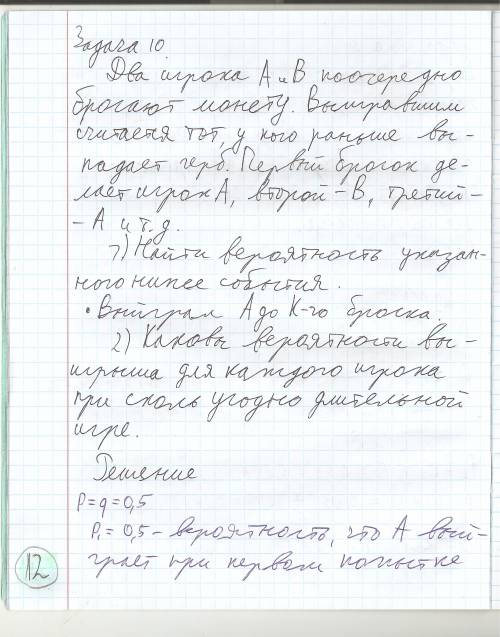 Задача 10
Два игрока А и В поочередно
бросают монету. Выигравшим
считается тот, у кого раньше вы-
падает герб. Первый бросок де-
лает игрок А, второй - В, третий -
- А и т.д.
1) Найти вероятность указан-
ного ниже события.
• Выйграл А до К-го броска.
2) Каковы вероятности вы-
игрыша для каждого игрока
при сколь угодно длительной
игре.
Решение
P=q=0,5
P₁=0,5 - вероятность, что А вый-
грает при первом попытке
12